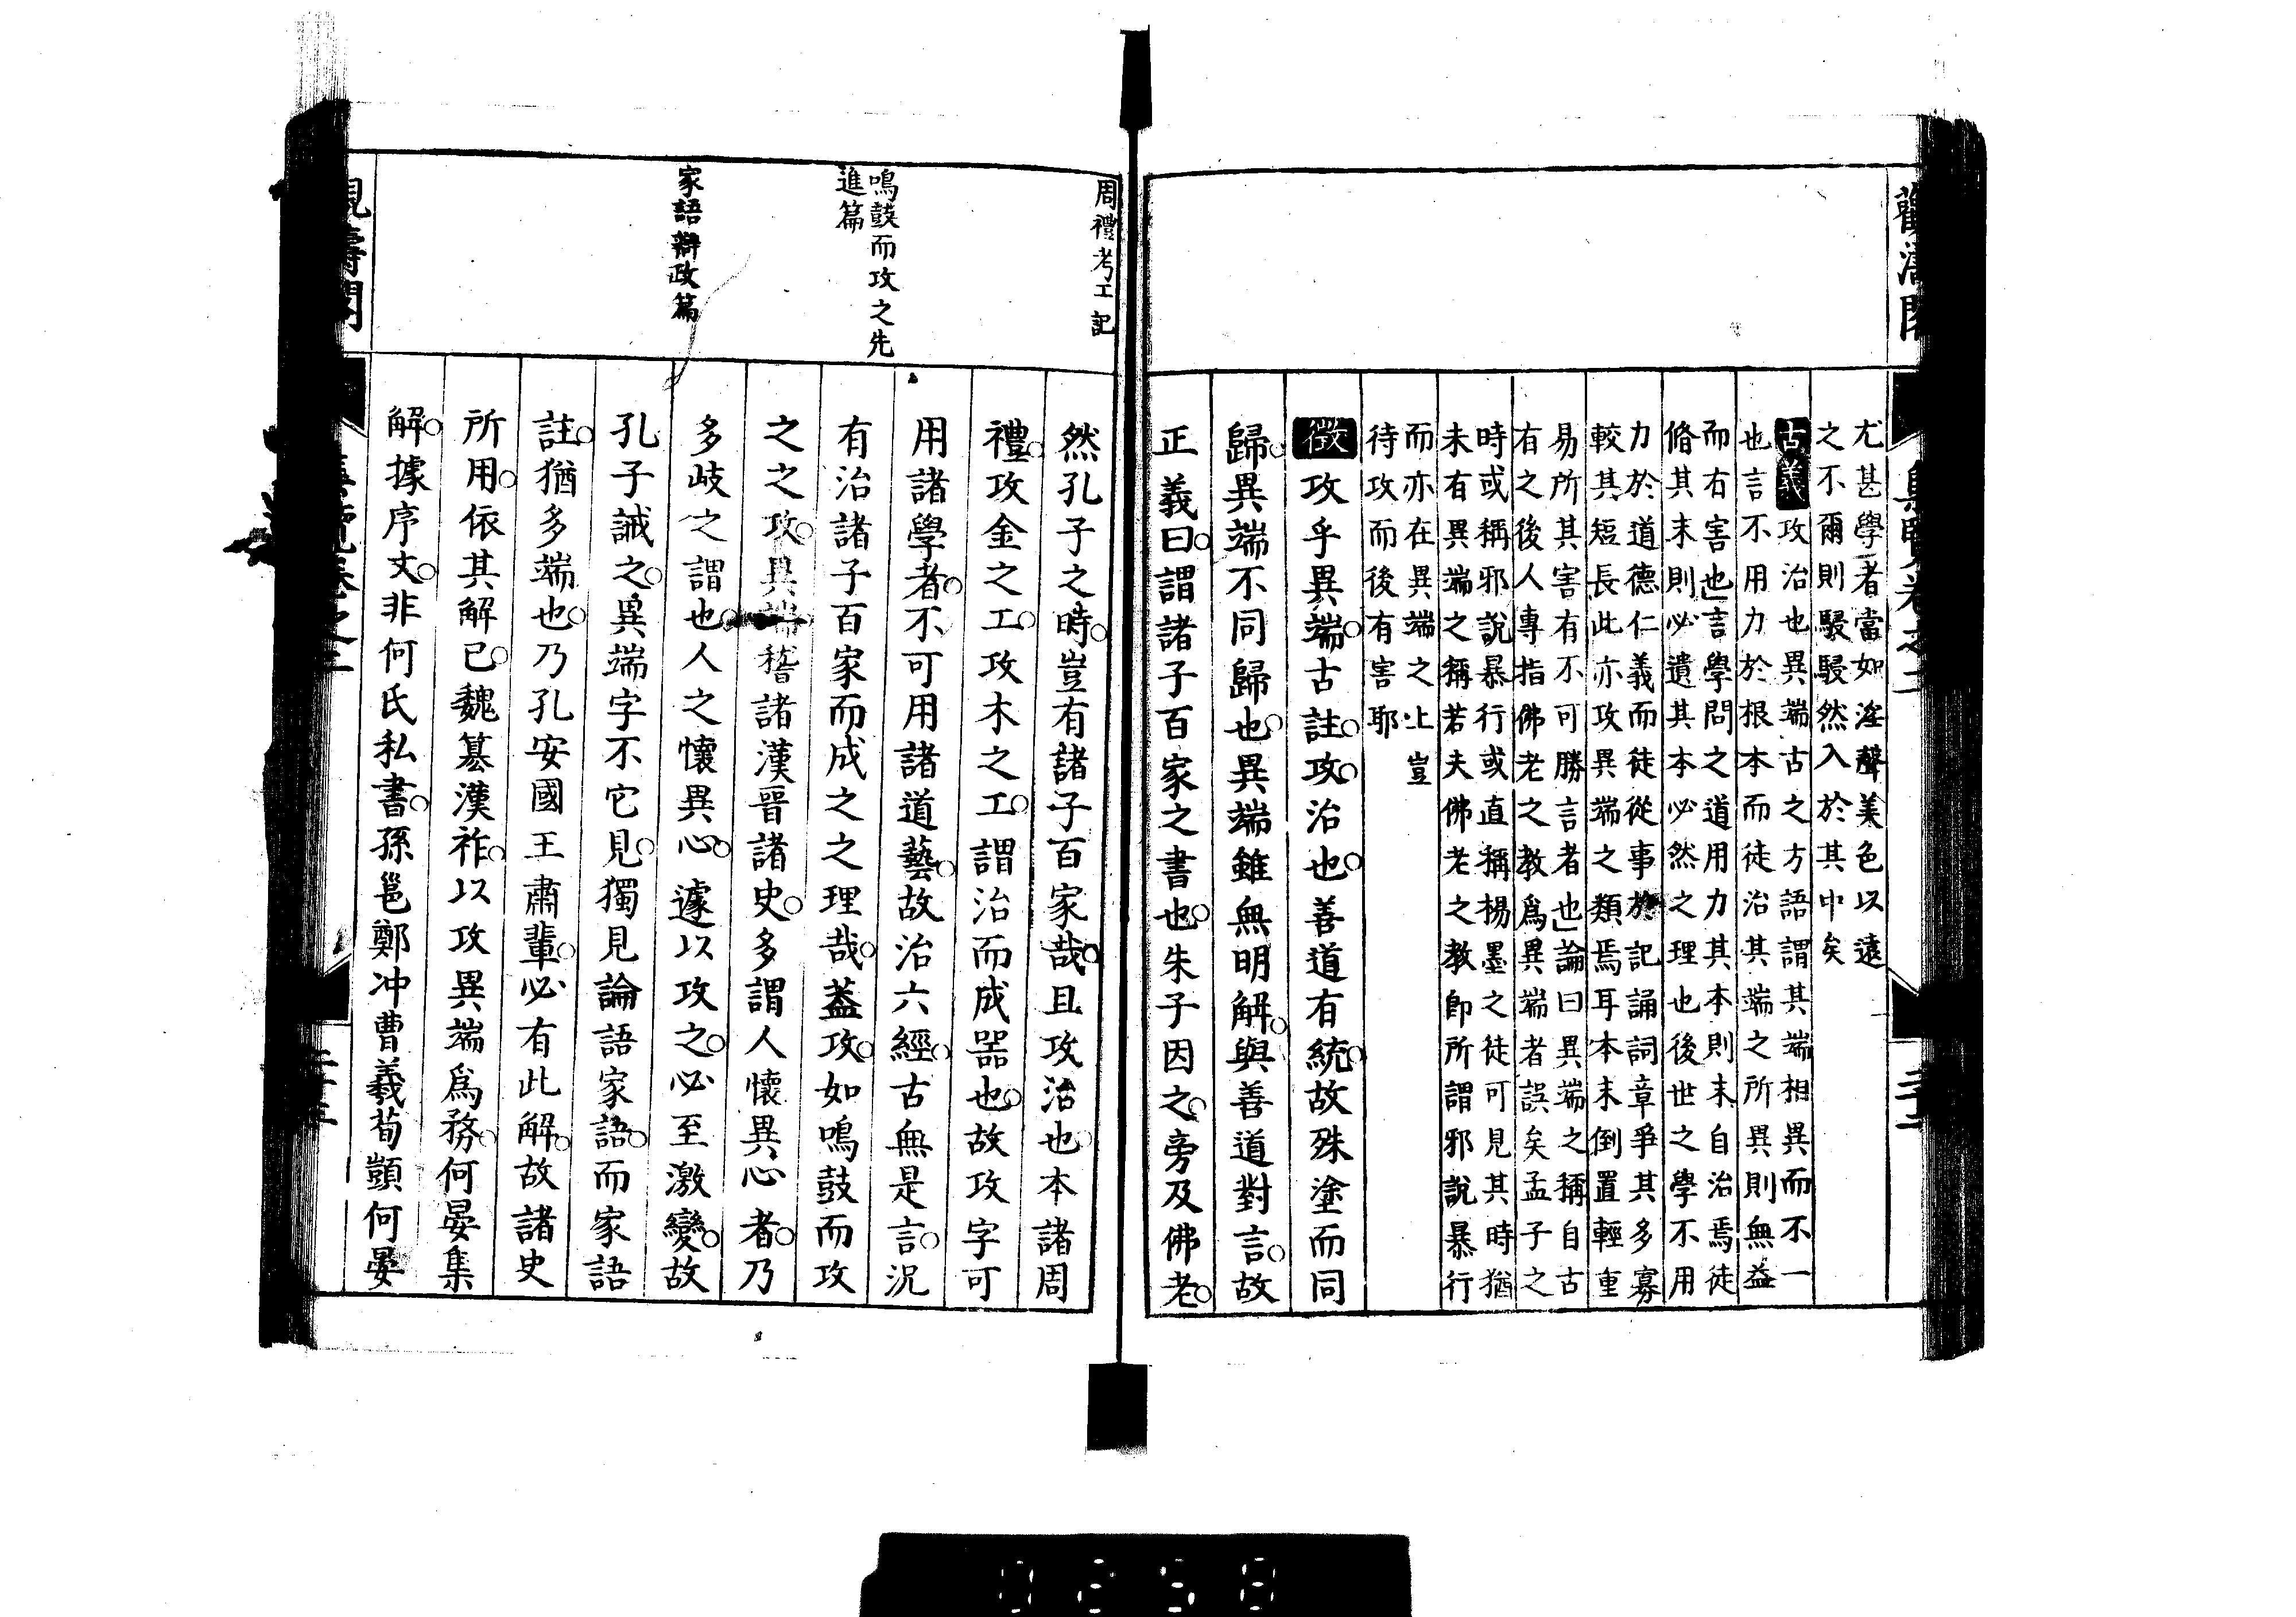 尤甚學者當如淫聲美色以遠
之不爾則駸駸然入於其中矣
古義攻治也異端古之方語謂其端相異而不一
也言不用力於根本而徒治其端之所異則無益
而有害也言學問之道用力其本則末自治焉徒
脩其末則必遺其本必然之理也後世之學不用
力於道德仁義而徒從事於記誦詞章爭其多寡
較其短長此亦攻異端之類焉耳本末倒置輕重
易所其害有不可勝言者也論曰異端之稱自古
有之後人專指佛老之教爲異端者誤矣孟子之
時或稱邪說暴行或直稱楊墨之徒可見其時猶
未有異端之稱若夫佛老之教卽所謂邪說暴行
而亦在異端之上豈
待攻而後有害耶
徵攻乎異端古註攻治也善道有統故殊塗而同
歸異端不同歸也異端雖無明解與善道對言故
正義曰謂諸子百家之書也朱子因之旁及佛老
周禮考工記
鳴鼓而攻之先
進篇
家語辯政篇
然孔子之時豈有諸子百家哉且攻治也本諸周
禮攻金之工攻木之工謂治而成器也故攻字可
用諸學者不可用諸道藝故治六經古無是言況
有治諸子百家而成之之理哉蓋攻如鳴鼓而攻
之之攻異端稽諸漢晉諸史多謂人懷異心者乃
多岐之謂也人之懷異心遽以攻之必至激變故
孔子誡之異端字不它見獨見論語家語而家語
註猶多端也乃孔安國王肅輩必有此解故諸史
所用依其解已魏簒漢祚以攻異端爲務何晏集
解據序文非何氏私書孫邕鄭冲曹羲荀顗何晏